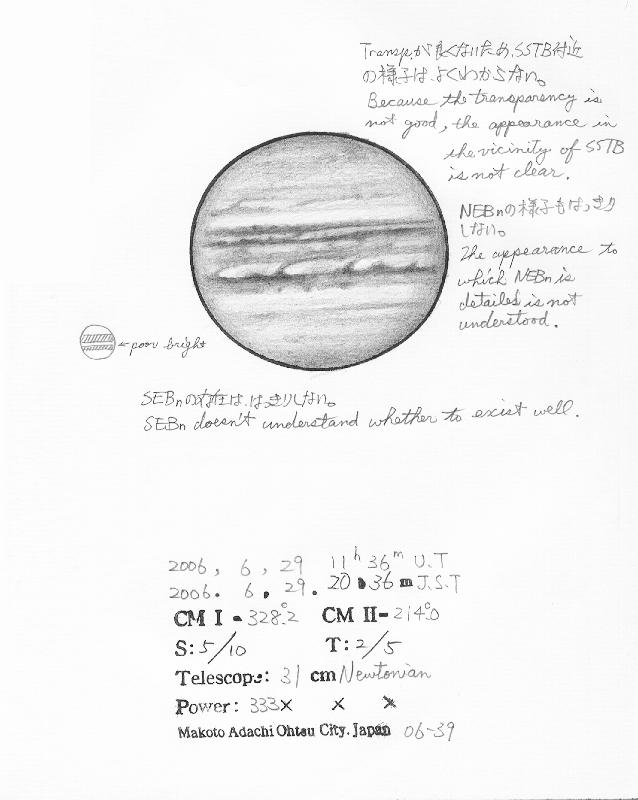 Transp.が良くないため、SSTB付近
の様子は、よくわからない。
Because the transparency is
not good, the appearance in
the vicinity of SSTB
is not clear.
NEBnの様子もはっきり
しない。
The appearance to
which NEBn is
detailed is not
understood.
←poor bright
SEBnの存在は、はっきりしない。
SEBn doesn't understand whether to exist well.
2006, 6, 29 11h 36m U.T
2006. 6. 29. 20 36m J.S.T
CM I - 328.°2 CM II- 214.°0
S: 5/10 T: 2/5
Telescope: 31 cm Newtonian
Power: 333× × ×
Makoto Adachi Ohtsu City. Japan 06-39